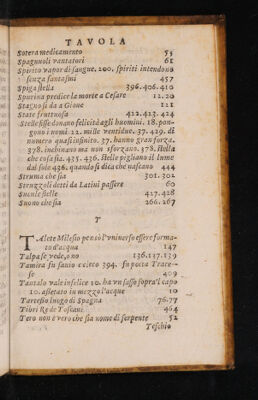 TAVOLA
Sotera medicamento 55
Spagnuoli vantatori 61
Spirito vapor di sangue. 200. spiriti intendono
senza fantasmi 457
Spiga stella 396.406.410
Spurina predice la morte a Cesare 12.20
Stagno si da a Gione 121
State fruttuosa 422.423.424
Stelle fisse donano felicità agli huomini. 18. pon-
gono i nomi 22. mille ventidue. 37. 429. di
numero quasi infinito. 37. hanno gran forza.
378. inchinano ma non sforzano. 378. stella
che cosa sia. 435. 436. Stelle pigliano il lume
dal sole 436. quando si dica che nascano 444
Struma che sia 301.302
Struzzoli detti da Latini passere 60
Sucule stelle 427.428
Suono che sia 266.267
T
TAlete Milesio pensò l'universo essere forma-
to d'acqua 147
Talpa se vede, o no 136.137.139
Tamira fu sauio e cieco 394. fu poeta Trace-
se 409
Tantalo vale infelice 10. ha un sasso sopra'l capo
10. assetato in mezzo l'acque 10
Tartesso luogo di Spagna 76.77
Tibri Re de Toscani 464
Tero non è vero che sia nome di serpente 52
Teschio